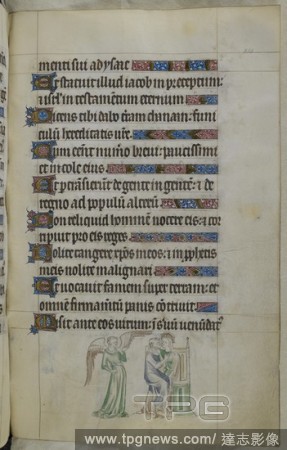 menti sui ad ysaac
Et statuit illud iacob in preceptum:
et isrl in testamentum eternum
Dicens tibi dabo terram chanaan: funi
culū hereditatis vre.
Cum essent numo brevi: paucissimi
et incole eius.
Et ptrāsierunt de gente in gentē: et de
regno ad populū alterū.
Non reliquid hominem nocere eis: et cor
ripuit pro eis reges.
Nolite tangere xpos meos: et in prophetis
meis nolite malignari
Et vocavit famem super terram: et
omnem firmamtū panis contrivit
Misit ante eos virum: in servum venundat
TPG
www.tpgnews.com / 達志影像